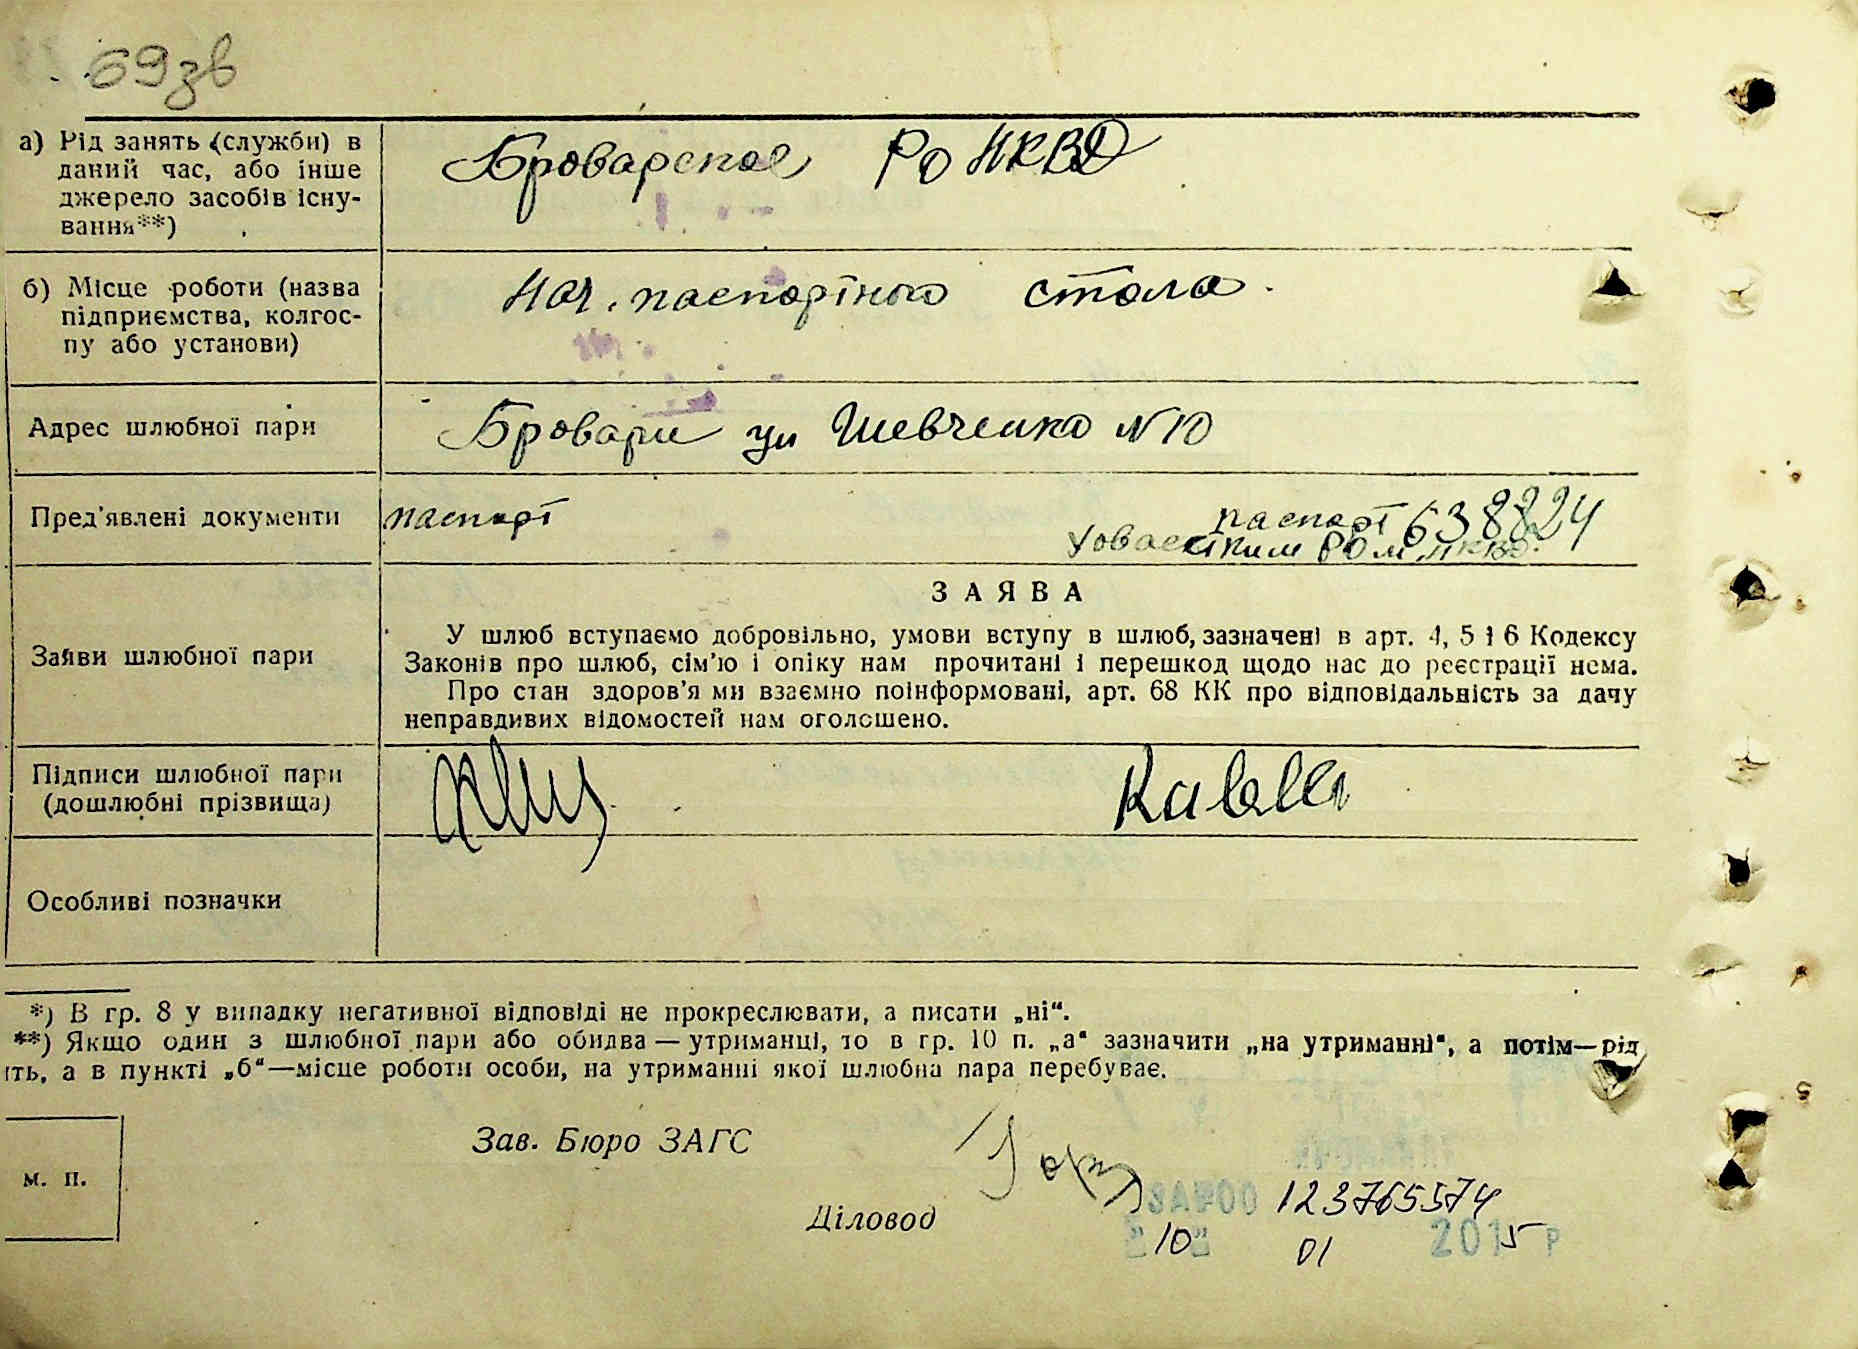 69зв
а) Рід занять (служби) в
даний час, або інше
джерело засобів існу-
вання**)
Броварское РО НКВД
б) Місце роботи (назва
підприємства, колгос-
пу або установи)
Нач. паспортного стола.
Адрес шлюбної пари
Бровари ул Шевченко №10
Пред'явлені документи
паспорт
паспорт 638824
РО м. НКВД.
ЗАЯВА
Заяви шлюбної пари
У шлюб вступаємо добровільно, умови вступу в шлюб, зазначені в арт. 4, 5 і 6 Кодексу
Законів про шлюб, сім'ю і опіку нам прочитані і перешкод щодо нас до реєстрації нема.
Про стан здоров'я ми взаємно поінформовані, арт. 68 КК про відповідальність за дачу
неправдивих відомостей нам оголошено.
Підписи шлюбної пари
(дошлюбні прізвища)
Особливі позначки
*) В гр. 8 у випадку негативної відповіді не прокреслювати, а писати „ні“.
**) Якщо один з шлюбної пари або обидва — утриманці, то в гр. 10 п. „а“ зазначити „на утриманні“, а потім—рід
ть, а в пункті „б“—місце роботи особи, на утриманні якої шлюбна пара перебуває.
м. п.
Зав. Бюро ЗАГС
Діловод
123765574
"10" 01 2015 р